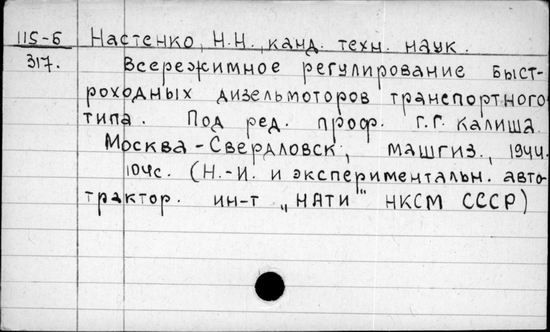 115-6 Настенко, Н.Н., канд. техн. наук.
317. Всережимное регулирование быст-
роходных дизельмоторов транспортного
типа. Под ред. проф. Г.Г. Калиша.
Москва-Свердловск, Машгиз., 1944.
104с. (Н.-И. и экспериментальн. авто-
трактор. ин-т „НАТИ" НКСМ СССР)